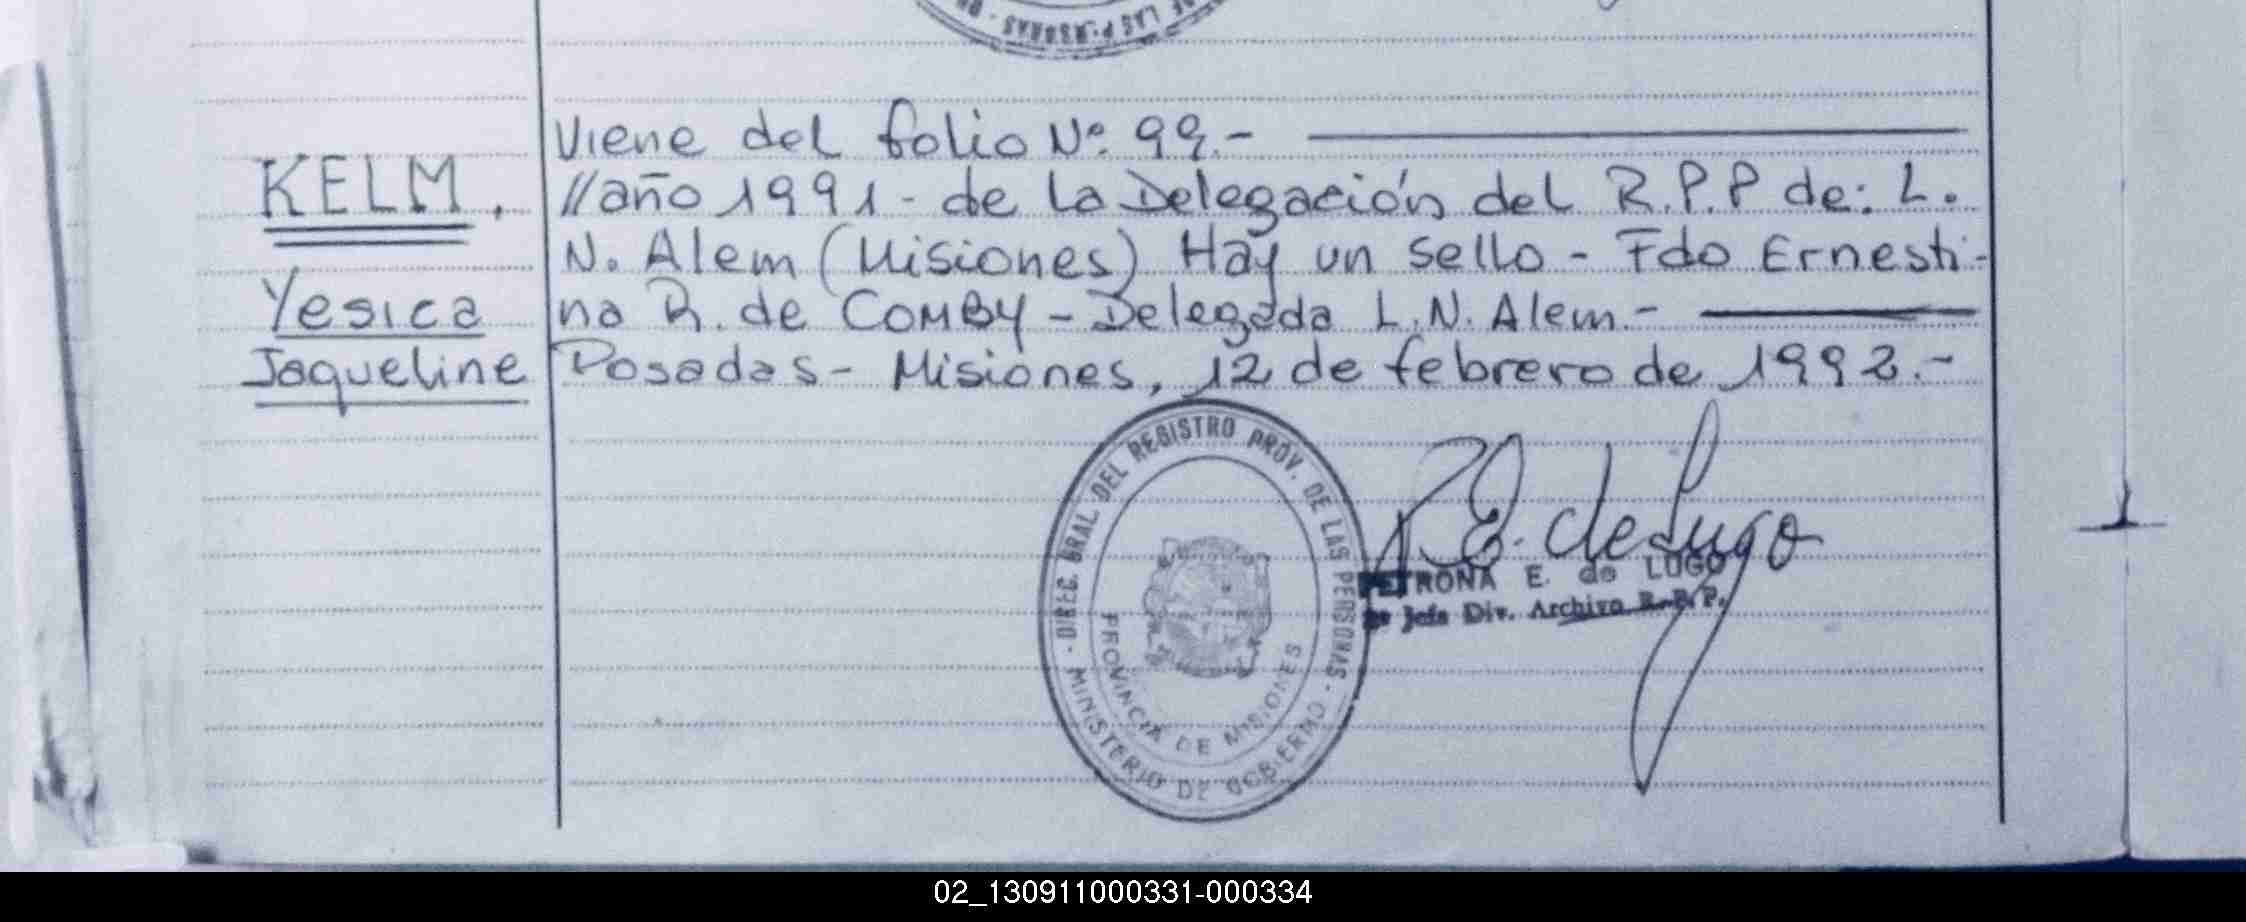 DE LAS PERSONAS -
Viene del folio Nº 99.-
KELM,
//año 1991 - de la Delegación del R.P.P de: L.
N. Alem (Misiones) Hay un sello - Fdo Ernesti-
Yesica
na R. de COMBY - Delegada L.N. Alem.-
Jaqueline
Posadas - Misiones, 12 de febrero de 1992.-
- DIREC. GRAL. DEL REGISTRO PROV. DE LAS PERSONAS -
MINISTERIO DE GOBIERNO
PROVINCIA DE MISIONES
P.E. de Lugo
PETRONA E. de LUGO
Jefe Div. Archivo R.P.P.
02_130911000331-000334